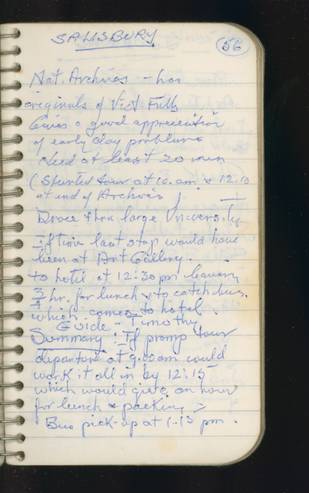 SALISBURY
56
Nat. Archives - has
originals of Vic Falls
Gives a good appreciation
of early day problems
need at least 20 min
(Started tour at 10 am & 12.10
at end of Archives
Drove thru large University
- if time last stop would have
been at Art Gallery.
to hotel at 12:30 pm leaving
3/4 hr. for lunch & to catch bus
which comes to hotel.
Guide - Timothy
Summary : If prompt tour
departure at 9:00am could
work it all in by 12:15
which would give an hour
for lunch & packing
Bus pick-up at 1.15 pm.